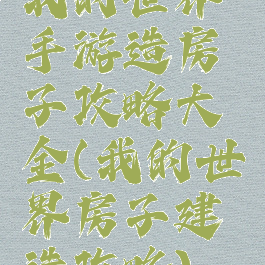 我的世界
手游造房
子攻略大
全(我的世
界房子建
造攻略)